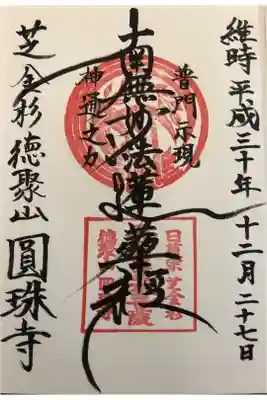 維時平成三十年十二月二十七日
普門示現
南無妙法蓮華経
神通之力
芝金杉徳聚山圓珠寺